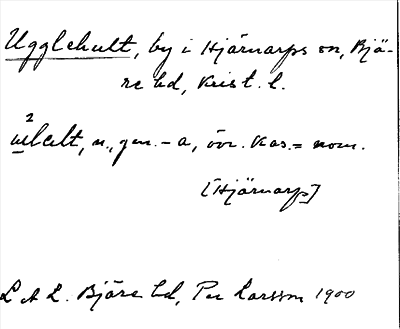 Ugglehult, by i Hjärnarps sn, Bjä-
re hd, Krist. l.
2
ulelt, n., gen. -a, övr. kas. = nom.
[Hjärnarp]
L A L. Bjäre hd, Per Larsson 1900